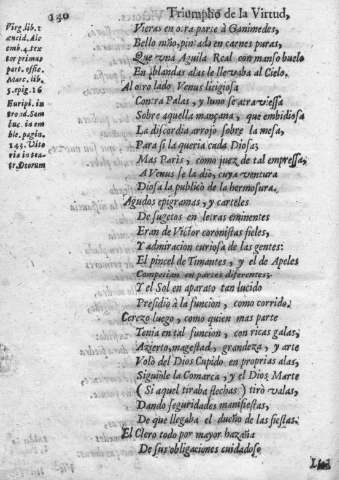 130
Triumpho de la Virtud,
Virg. lib. 1
æneid. Al
emb. 4. tex
tor primus
part. offic.
Marc. lib.
5. epig. 16
Euripi. in
troad. Sem
luc. in em
ble. pagin.
143. Vito
ria in tea-
tr. Deorum
Vieras en otra parte à Ganimedes,
Bello niño, pintado en carnes puras,
Que vna Aguila Real con manso buelo
En blandas alas le llevaba al Cielo.
Al otro lado Venus litigiosa
Contra Palas, y Iuno se atraviessa
Sobre aquella mançana, que embidiosa
La discordia arrojo sobre la mesa,
Para si la queria cada Diosa;
Mas Paris, como juez de tal empressa,
A Venus se la diò, cuya ventura
Diosa la publicò de la hermosura.
Agudos epigramas, y carteles
De sugetos en letras eminentes
Eran de Victor coronistas fieles,
Y admiracion curiosa de las gentes:
El pincel de Timantes, y el de Apeles
Competian en partes diferentes,
Y el Sol en aparato tan lucido
Presidiò à la funcion, como corrido.
Cerezo luego, como quien mas parte
Tenia en tal funcion, con ricas galas,
Azierto, magestad, grandeza, y arte
Volò del Dios Cupido en proprias alas,
Siguiòle la Comarca, y el Dios Marte
(Si aquel tiraba flechas) tirò valas,
Dando seguridades manifiestas,
De que llegaba el dueño de las fiestas.
El Clero todo por mayor hazaña
De sus obligaciones cuidadoso